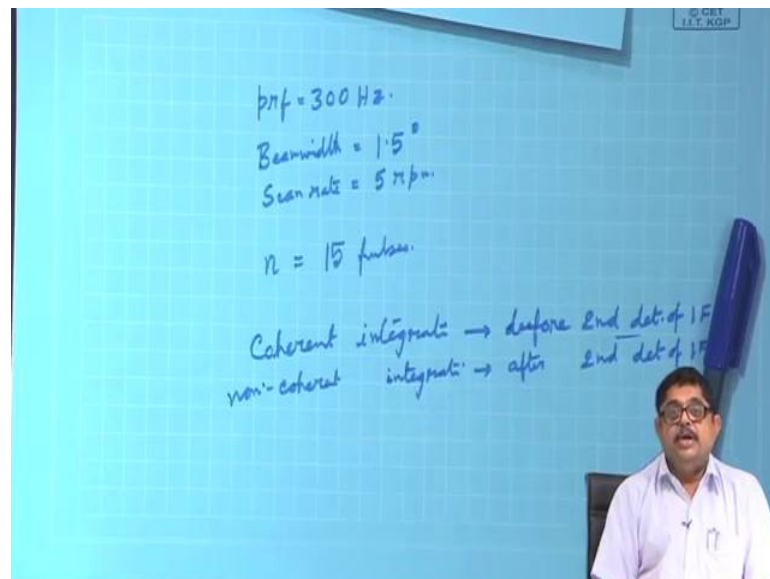 © CET
I.I.T. KGP
prf = 300 Hz.
Beamwidth = 1.5°
Scan rate = 5 rpm.
n = 15 pulses.
Coherent integrati → before 2nd det. of IF
non-coherent integrati → after 2nd det of IF